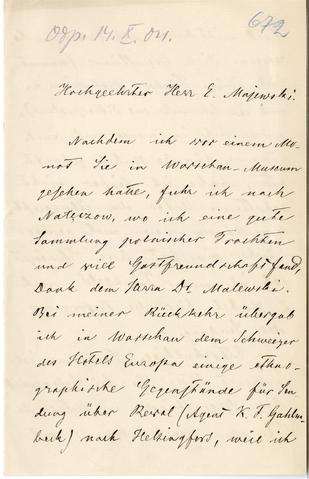 Odp. 14. X. 04.
672
Hochgeehrter Herr E. Majewski.
Nachdem ich vor einem Mo-
nat Sie in Warschau-Museum
gesehen hatte, fuhr ich nach
Natęczow, wo ich eine gute
Sammlung polnischer Trachten
und viel Gastfreundschaft fand,
Dank dem Herrn Dr. Malewski.
Bei meiner Rückkehr übergab
ich in Warschau dem Schweizer
des Hotels Europa einige ethno-
graphische Gegenstände für Sen-
dung über Reval (Agent K. F.
beck) nach Helsingfors, weil ich